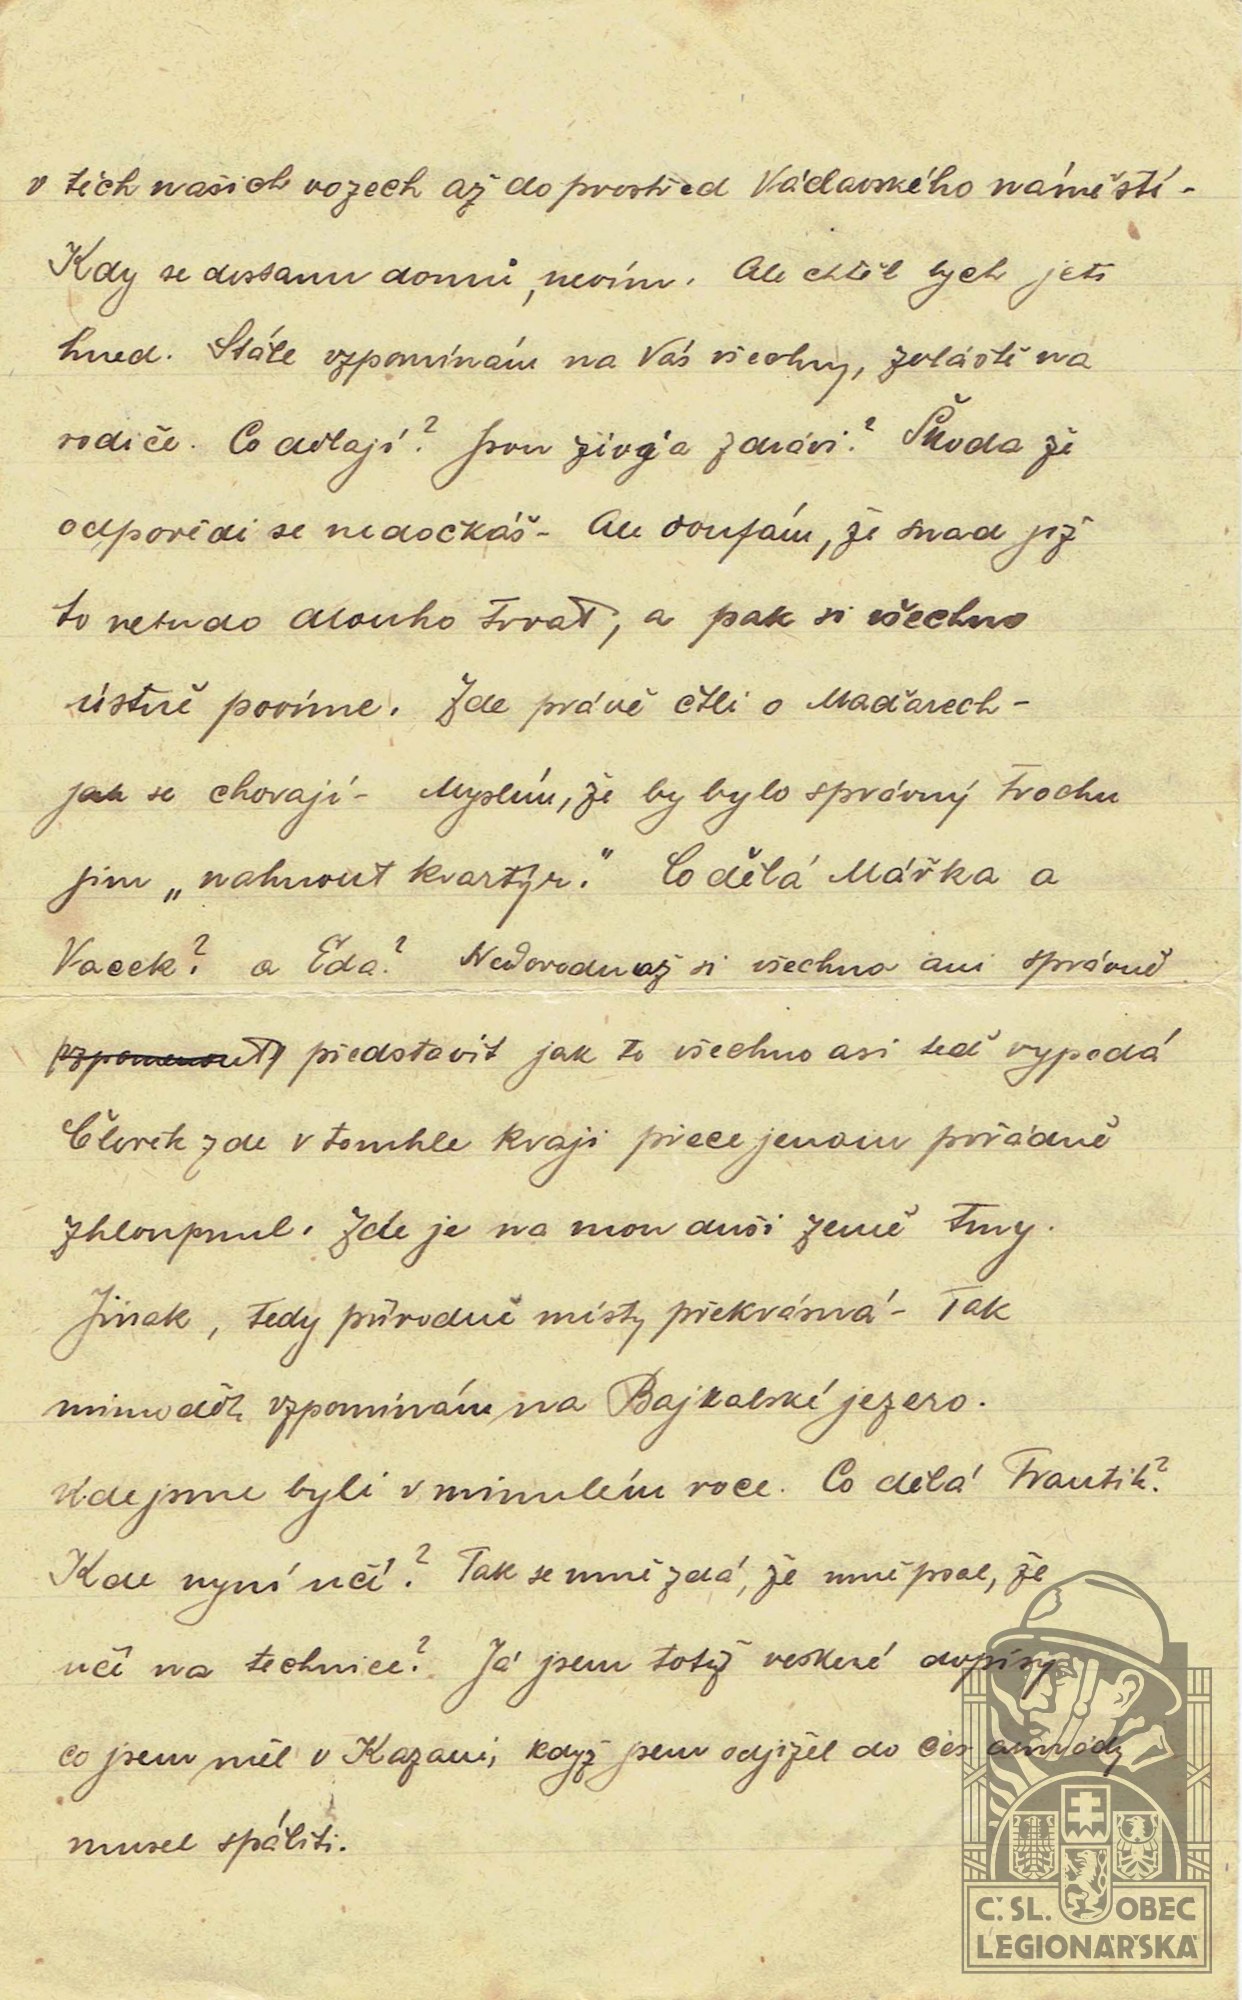 v těch našich vozech až do prostřed Václavského náměstí -
Kdy se dostanu domů, nevím. Ale chtěl bych jeti
hned. Stále vzpomínám na Vás všechny, zvláště na
rodiče. Co dělají? Jsou živi a zdrávi? Škoda že
odpovědi se nedočkáš - Ale doufám, že snad již
to nebudo dlouho trvat, a pak si všechno
ústně povíme. Zde právě čtli o Maďarech -
jak se chovají - Myslím, že by bylo správný trochu
jim „nahnout kvartýr." Co dělá Mářka a
Vacek? a Eda? Nedovedu až si všechno ani správně
vzpomenout představit jak to všechno asi teď vypadá
Člověk zde v tomhle kraji přece jenom pořádně
zhloupnul. Zde je na mou duši země tmy.
Jinak, tedy přírodně místy překrásná - Tak
mimoděk vzpomínám na Bajkalské jezero.
kde jsme byli v minulém roce. Co dělá Frantík?
Kde nyní učí? Tak se mně zdá, že mně psal, že
učí na technice? Já jsem totiž veškeré dopisy
co jsem měl v Kazani, když jsem odjížěl do čes armády
musel spáliti.
Č. SL. OBEC
LEGIONÁŘSKÁ